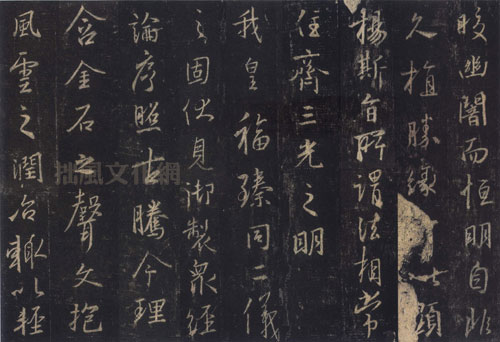 曖幽闇而恒明自非
久植勝緣以顯
揚斯旨所謂法相常
住齊三光之明
我皇福臻同二儀
之固伏見御製眾經
論序照古騰今理
含金石之聲文抱
風雲之潤治輒以輕
拙風文化網